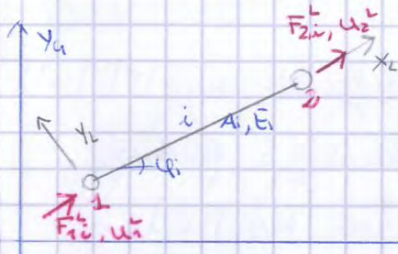 F₂,ᵢᴸ, u₂ᴸ
Y_G
X_L
Y_L
i
Aᵢ, Eᵢ
2
φᵢ
1
F₁ᵢᴸ, u₁ᴸ